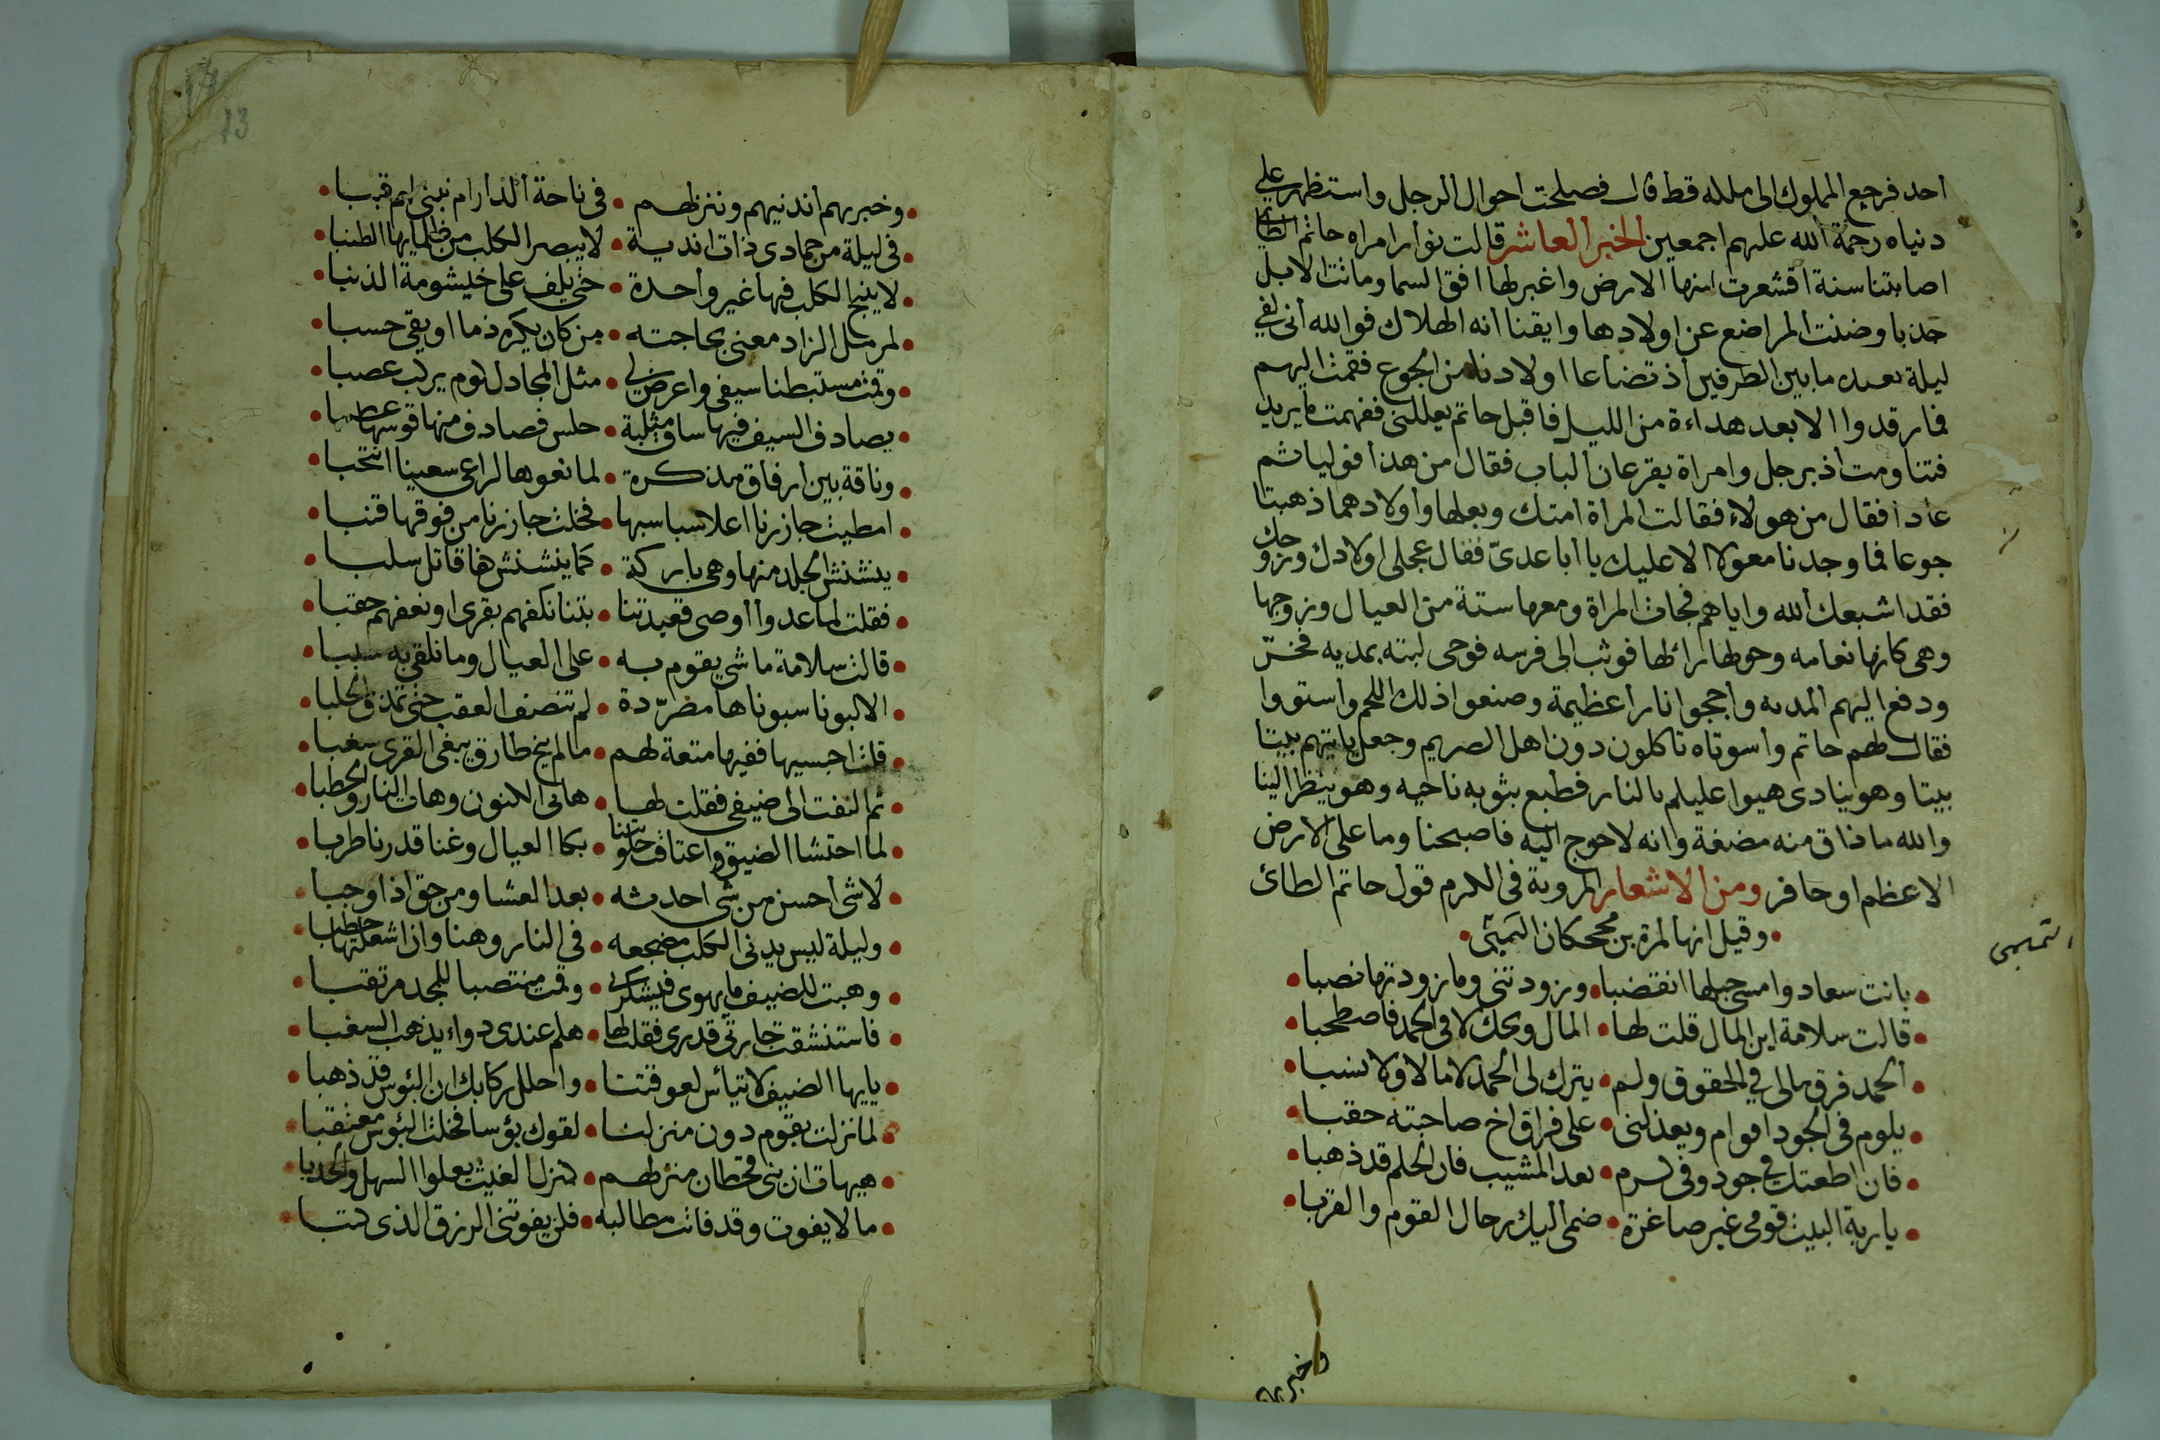 احد فرجع المملوك الى ملكه قط قال فصلحت احوال الرجل واستظهر على
دنياه رحمة الله عليهم اجمعين الخبر العاشر قالت نوار امراه حاتم الطائى
اصابتنا سنة اقشعرت منها الارض واغبر لها افق السما وماتت الابل
حدبا وضنت المراضع عن اولادها وايقنا انه الهلاك فوالله انى لفي
ليلة بعيده مابين الطرفين اذ تضاعا اولادنا من الجوع فقمت اليهم
فما رقدوا الا بعد هداءة من الليل فاقبل حاتم يعللنى ففهمت ما يريد
فتناومت اذ برجل وامراة يقرعان الباب فقال من هذا فوليا ثم
عادا فقال من هولاء فقالت المراة امتك وبعلها واولادهما ذهبتا
جوعا فما وجدنا معولا الا عليك يا أبا عدىّ فقال عجلى اولادك وزوجك
فقد اشبعك الله واياهم فجات المراة ومعها ستة من العيال وزوجها
وهى كانها نعامه وحولها رائلها فوثب الى فرسه فوجى لبته بمديه فخرّ
ودفع اليهم المديه وأججوا نارا عظيمة وصنعوا ذلك اللحم واستووا
فقال لهم حاتم واسوتاه تاكلون دون اهل الصريم وجعل ياتيهم بيتا
بيتا وهو ينادى هيوا عليكم بالنار فطبع بثوبه ناحيه وهو ينظر الينا
والله ما ذاق منه مضغة وانه لاحوج اليه فاصبحنا وما على الارض
الا عظم او حافر ومن الاشعار المروية فى الكرم قول حاتم الطائ
• وقيل انها لمرة بن محكان التميمى •
التميمى
• بانت سعاد وامسى حبلها انقضبا • وزودتنى وما زودتها نصبا •
• قالت سلامة اين المال قلت لها • المال ويحك لاقى الحمد فاصطحبا •
• الحمد فرق مالى في الحقوق ولم • يترك لى الحمد لا مالا ولا نسبا •
• يلوم فى الجود اقوام ويعذلنى • على فراق اخ صاحبته حقبا •
• فان اطعتك في جود وفى كرم • بعد المشيب فان الحلم قد ذهبا •
• يا ربة البيت قومى غير صاغرة • ضمى اليك رحال القوم والقربا •
وخبريهم
• وخبريهم أندنيهم وننزلهم • فى ناحة الدار ام نبنى لهم قببا •
• فى ليلة من جمادى ذات اندية • لا يبصر الكلب من ظلمايها الطنبا •
• لا ينبح الكلب فيها غير واحدة • حتى يلف على خيشومة الذنبا •
• لمرمل الزاد معنى بحاجته • من كان يكره ذما او يقى حسبا •
• وقمت مستبطنا سيفى واعرض لى • مثل المجادل كوم بركت عصبا •
• يصادف السيف فيها ساق مثلية • جلس فصادف منها قوسها عصبا
• وناقة بين ارفاق مذكرة • لما نعوها لراعى سعينا انتحبا •
• امطيت جازرنا اعلا سباسبها • فخلت جازرنا من فوقها قتبا •
• ينشنش الجلد منها وهى باركة • كما ينشنش هفا قاتل سلبا •
• فقلت لما عدوا أوصى قعيدتنا • بتنا نكفهم بقرى او نعفهم حقبا •
• قالت سلامة ما شى يقوم به • على العيال وما نلقى به سببا •
• الا لبونا سبوناها مضرّدة • لم تنصف العقب حتى تمذق الحلبا •
• قلت احبسيها ففيها متعة لهم • ما لم ينخ طارق يبغى القرى سغبا •
• ثم التفت الى ضيفى فقلت لها • هاتى الكنون وهات النار والحطبا •
• لما احتشا الضيق واعتافت حلوبتنا • بكا العيال وغنا قدرنا طربا •
• لا شى احسن من شى احدثه • بعد العشا ومن حق اذا وجبا •
• وليلة ليس يدنى الكلب مضجعه • فى النار وهنا وان اشعلتها حطبا
• وهبت للضيف ما يهوى فيشكرنى • وقمت منتصبا للمجد مرتقبا •
• فاستنشقت جارتى قدرى فقلت لها • هلم عندى دواء يذهب السغبا •
• يايها الضيف لا تيأس لعوفتنا • واحلل ركابك ان البئوس قد ذهبا •
• لما نزلت بقوم دون منزلنا • لقوك بؤسا فخلت البئوس معتقبا •
• هيهات ان بنى قحطان منزلهم • كمنزل الغيث يعلوا السهل والحدبا •
• ما لا يفوت وقد فاتت مطالبه • فلن يفوتنى الرزق الذى كتبا •